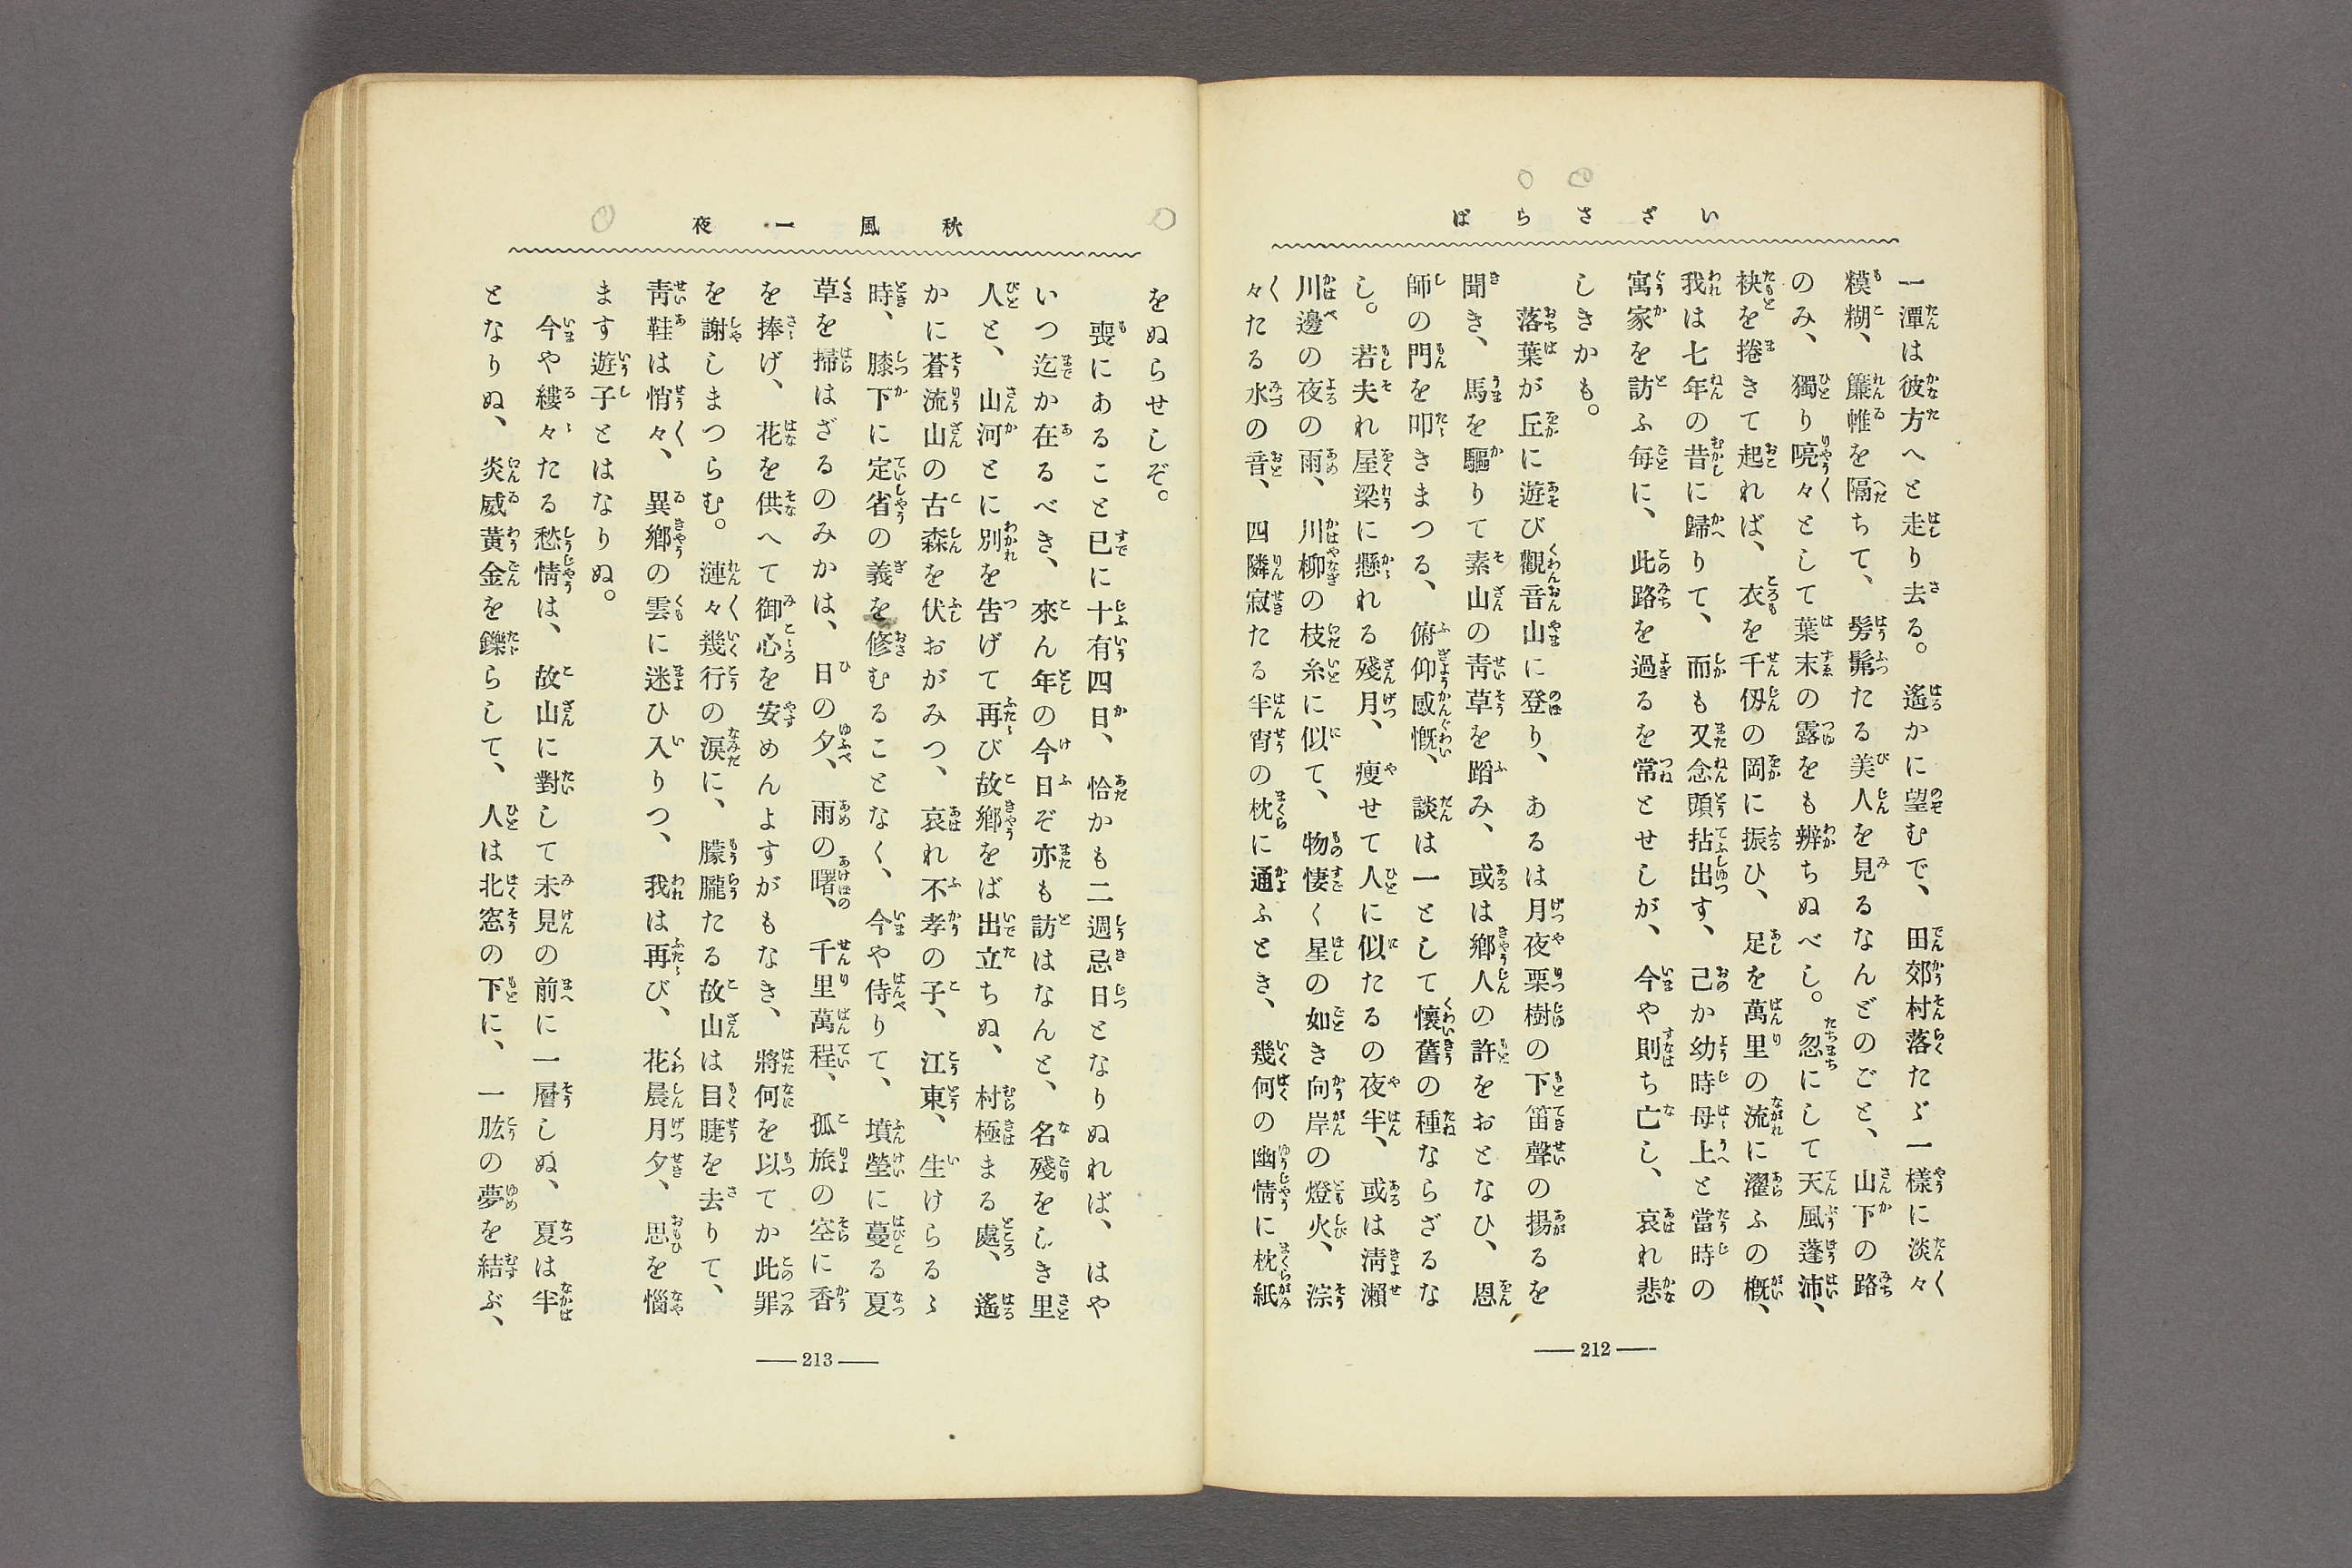 いざさらば
一潭は彼方へと走り去る。遙かに望むで、田郊村落たゞ一樣に淡々
糢糊、簾帷を隔ちて、髣髴たる美人を見るなんどのごと、山下の路
のみ、獨り喨々として葉末の露をも辨ちぬべし。忽にして天風蓬沛、
袂を捲きて起れば、衣を千仭の岡に振ひ、足を萬里の流に濯ふの概、
我は七年の昔に歸りて、而も又念頭拈出す、己か幼時母上と當時の
寓家を訪ふ毎に、此路を過るを常とせしが、今や則ち亡し、哀れ悲
しきかも。
落葉が丘に遊び觀音山に登り、あるは月夜栗樹の下笛聲の揚るを
聞き、馬を驅りて素山の靑草を蹈み、或は鄕人の許をおとなひ、恩
師の門を叩きまつる、俯仰感慨、談は一として懷舊の種ならざるな
し。若夫れ屋梁に懸れる殘月、瘦せて人に似たるの夜半、或は淸瀨
川邊の夜の雨、川柳の枝糸に似て、物悽く星の如き向岸の燈火、淙
々たる水の音、四隣寂たる半宵の枕に通ふとき、幾何の幽情に枕紙
212
秋風一夜
をぬらせしぞ。
喪にあること已に十有四日、恰かも二週忌日となりぬれば、はや
いつ迄か在るべき、來ん年の今日ぞ亦も訪はなんと、名殘をしき里
人と、山河とに別を告げて再び故鄕をば出立ちぬ、村極まる處、遙
かに蒼流山の古森を伏おがみつ、哀れ不孝の子、江東、生けらるゝ
時、膝下に定省の義を修むることなく、今や侍りて、墳塋に蔓る夏
草を掃はざるのみかは、日の夕、雨の曙、千里萬程、孤旅の空に香
を捧げ、花を供へて御心を安めんよすがもなき、將何を以てか此罪
を謝しまつらむ。漣々幾行の淚に、朦朧たる故山は目睫を去りて、
靑鞋は悄々、異鄕の雲に迷ひ入りつ、我は再び、花晨月夕、思を惱
ます遊子とはなりぬ。
今や縷々たる愁情は、故山に對して未見の前に一層しぬ、夏は半
となりぬ、炎威黃金を鑠らして、人は北窓の下に、一肱の夢を結ぶ、
213